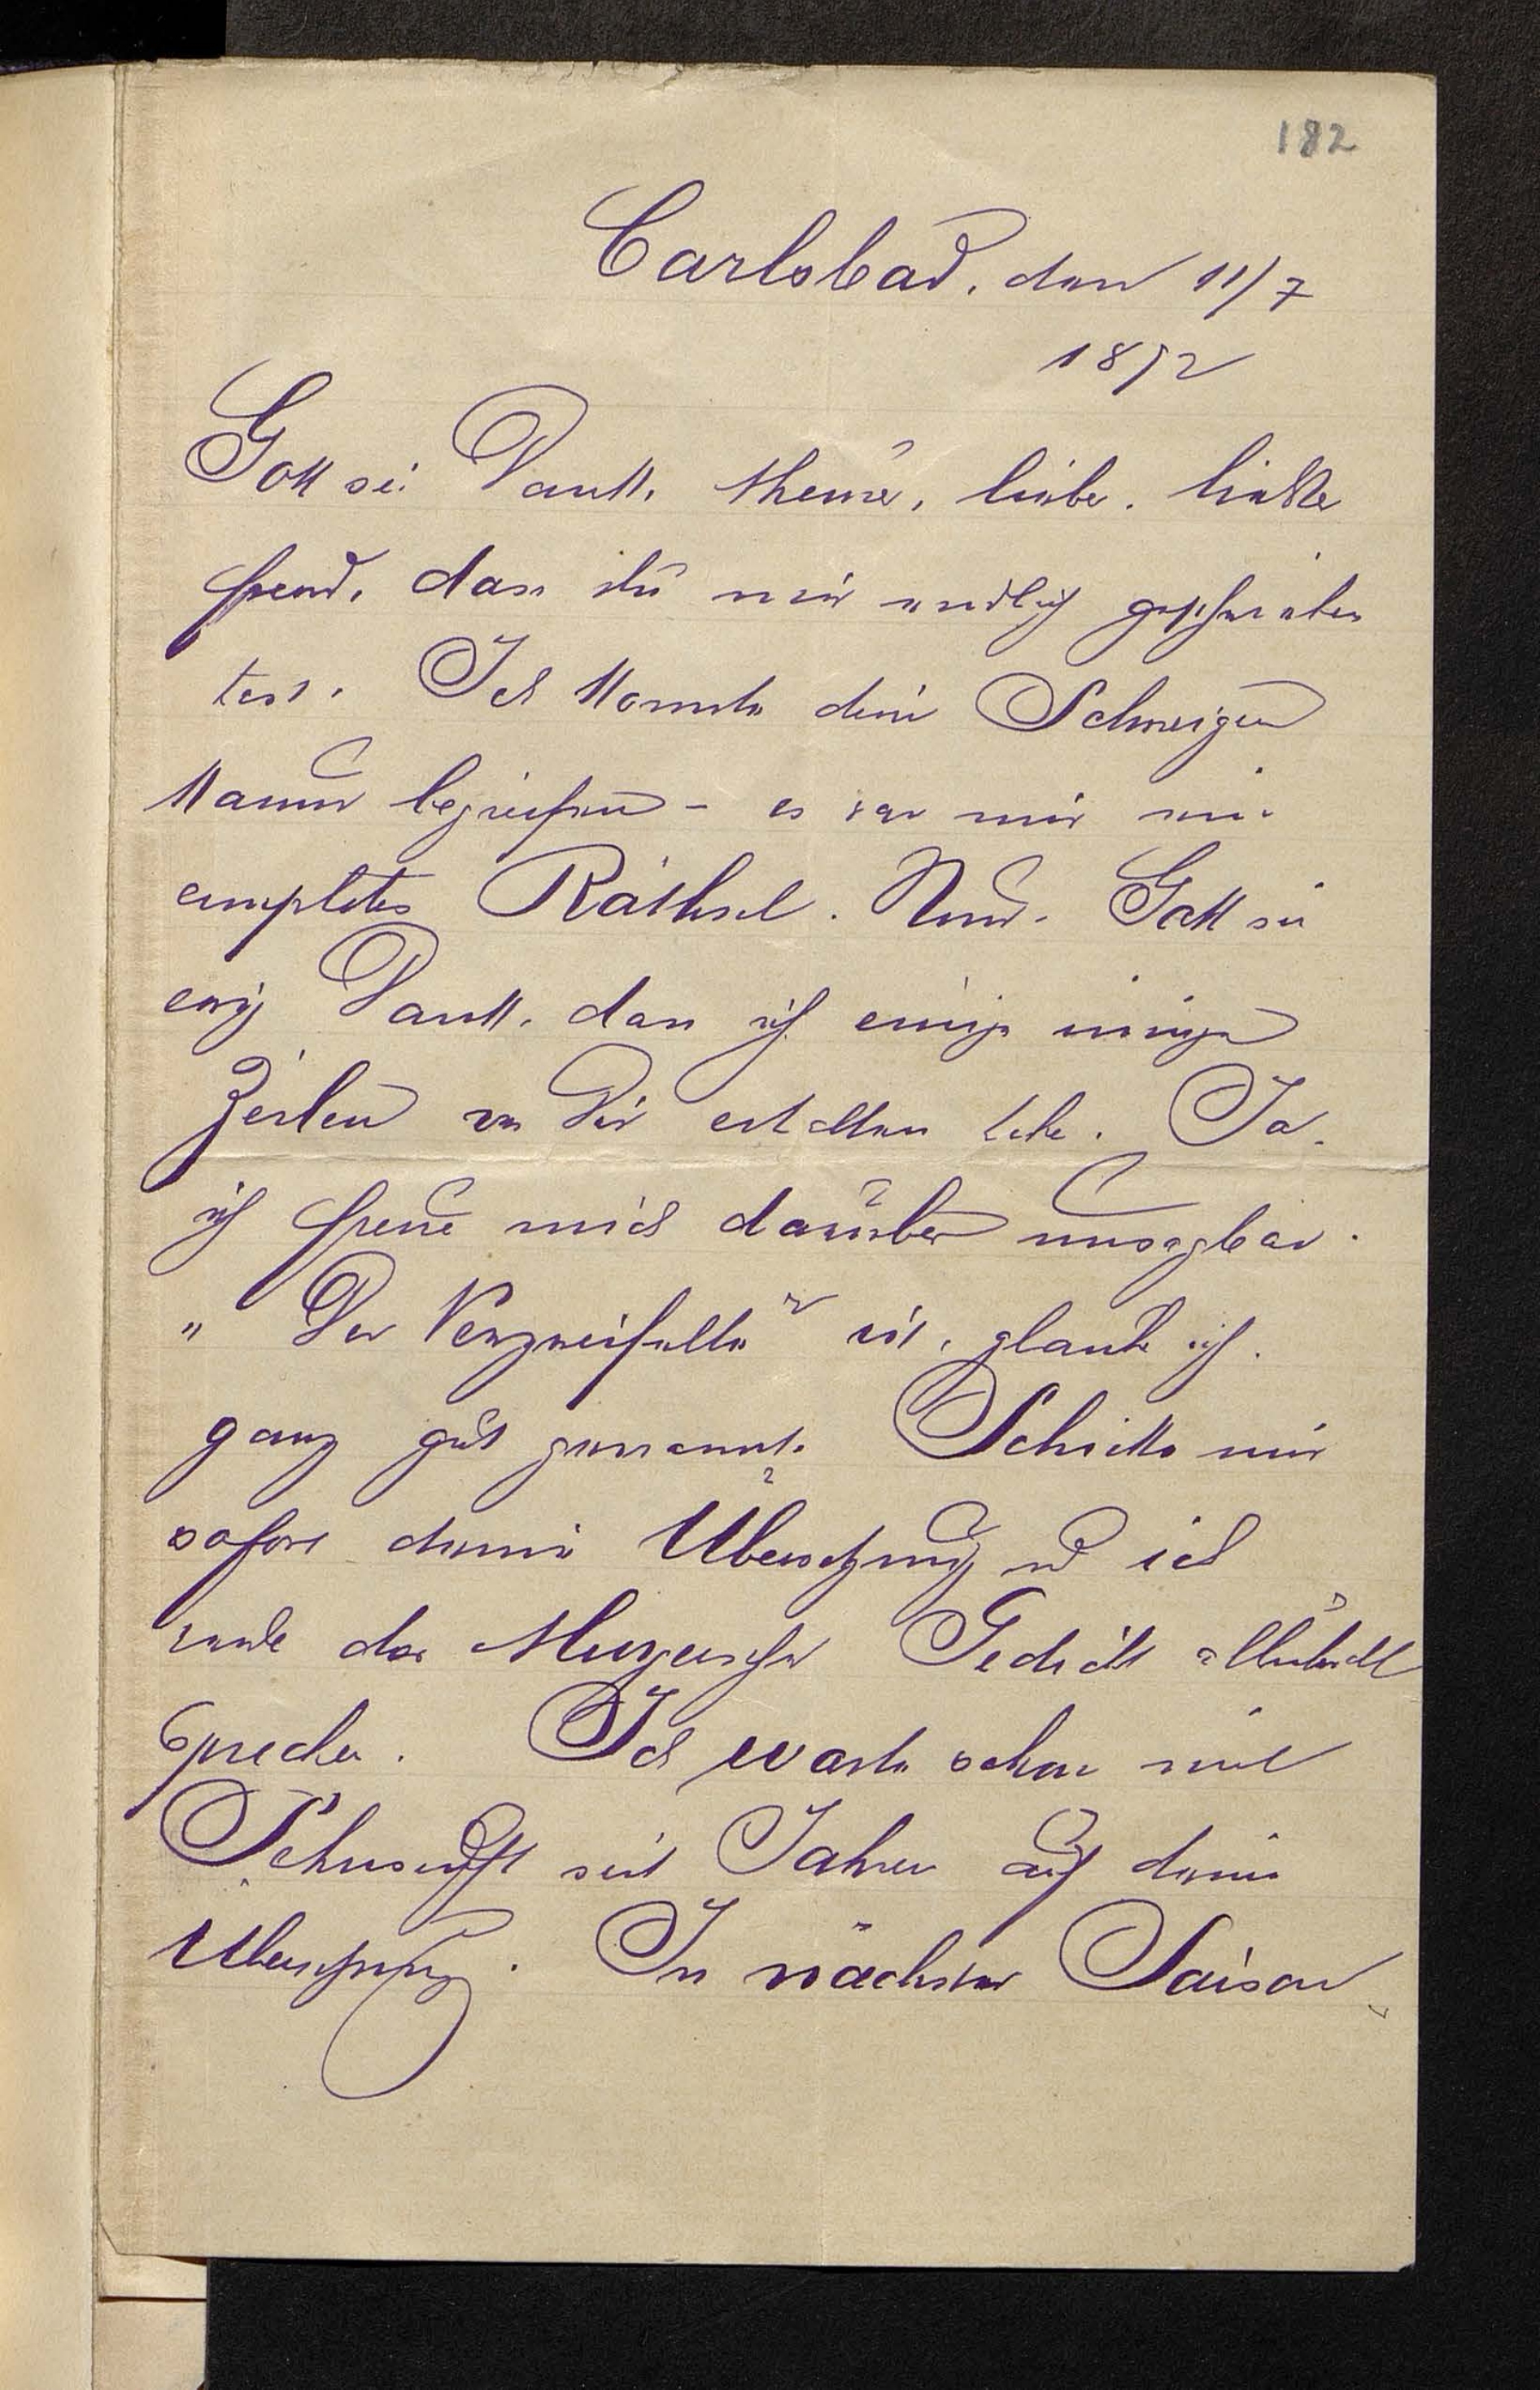 182
Carlsbad, den 11/7
1892
Gott sei Dank, theurer, lieber, liebster
Freund, dass du mir endlich geschrieben
hast. Ich konnte dein Schweigen
kaum begreifen – es war mir ein
completes Räthsel. Nun, Gott sei
ewig Dank, dass ich einige innige
Zeilen von Dir erhalten habe. Ja,
ich freue mich darüber unsagbar.
„Der Verzweifelte" ist, glaube ich,
ganz gut genannt. Schicke mir
sofort deine Übersetzung und ich
werde das Gedicht
sprechen. Ich warte schon mit
Sehnsucht seit Jahren auf deine
Übersetzung. In nächster Saison